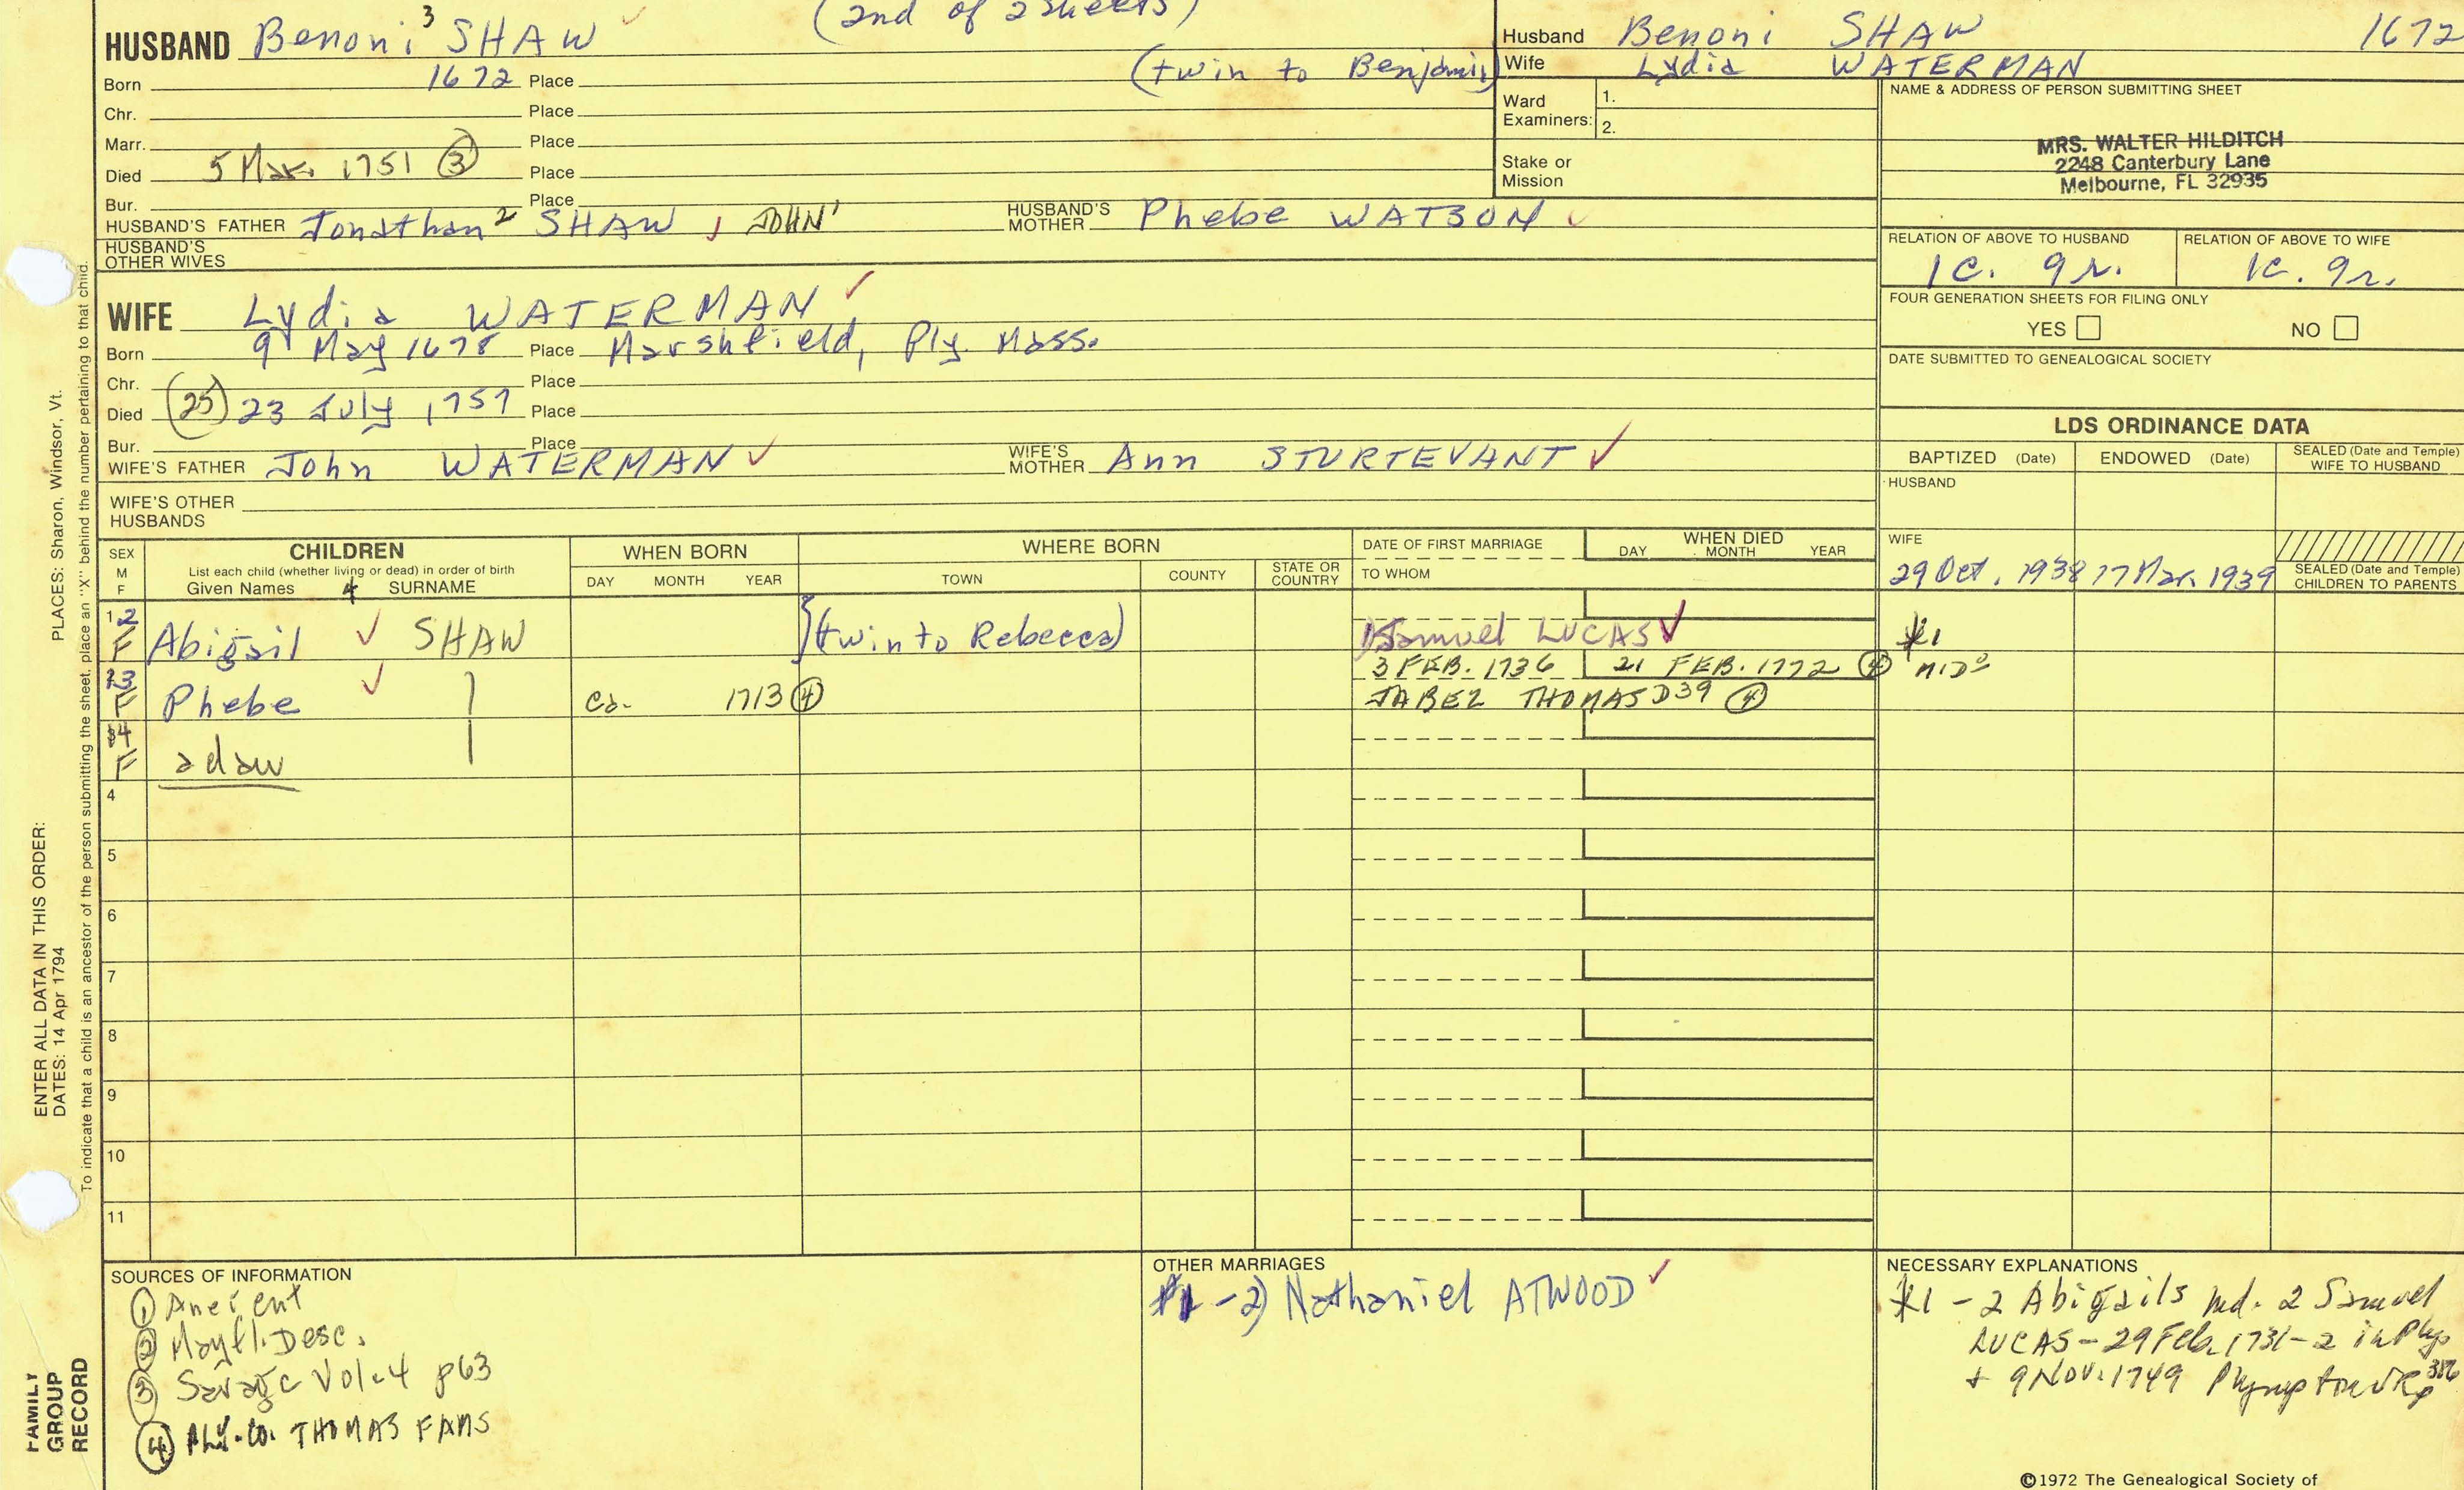 (2nd of 2 sheets)
HUSBAND Benoni 3 SHAW
Born 1672 Place (twin to Benjamin)
Chr. Place
Marr. Place
Died 5 Mar. 1751 (3) Place
Bur. Place
HUSBAND'S FATHER Jonathan 2 SHAW, JOHN 1 HUSBAND'S MOTHER Phebe WATSON
HUSBAND'S OTHER WIVES
WIFE Lydia WATERMAN
Born 9 May 1678 Place Marshfield, Ply. Mass.
Chr. Place
Died (25) 23 July 1757 Place
Bur. Place
WIFE'S FATHER John WATERMAN WIFE'S MOTHER Ann STURTEVANT
WIFE'S OTHER HUSBANDS
Husband Benoni SHAW 1672
Wife Lydia WATERMAN
Ward Examiners: 1.
2.
Stake or Mission
NAME & ADDRESS OF PERSON SUBMITTING SHEET
MRS. WALTER HILDITCH
2248 Canterbury Lane
Melbourne, FL 32935
RELATION OF ABOVE TO HUSBAND RELATION OF ABOVE TO WIFE
1c. 9r. 1c. 9r.
FOUR GENERATION SHEETS FOR FILING ONLY
YES NO
DATE SUBMITTED TO GENEALOGICAL SOCIETY
LDS ORDINANCE DATA
BAPTIZED (Date) ENDOWED (Date) SEALED (Date and Temple) WIFE TO HUSBAND
HUSBAND
WIFE
29 Oct. 1938 17 Mar. 1939 SEALED (Date and Temple) CHILDREN TO PARENTS
SEX M F CHILDREN WHEN BORN WHERE BORN DATE OF FIRST MARRIAGE WHEN DIED
List each child (whether living or dead) in order of birth
Given Names 4 SURNAME DAY MONTH YEAR TOWN COUNTY STATE OR COUNTRY TO WHOM DAY MONTH YEAR
12 F Abigail SHAW (twin to Rebecca) 1) Samuel LUCAS *1
13 F Phebe ca. 1713 (4) 3 FEB. 1736 21 FEB. 1772 (4)
JABEZ THOMAS D39 (4)
14 F adaw
4
5
6
7
8
9
10
11
SOURCES OF INFORMATION
(1) Ancient
(2) Mayfl. Desc.
(3) Savage Vol. 4 p63
(4) Ply. Co. THOMAS FAMS
OTHER MARRIAGES
*1 - 2) Nathaniel ATWOOD
NECESSARY EXPLANATIONS
*1 - 2 Abigails md. 2 Samuel
LUCAS - 29 Feb. 1731-2 in Ply
+ 9 Nov. 1749 Plympton
©1972 The Genealogical Society of
PLACES: Sharon, Windsor, Vt.
ENTER ALL DATA IN THIS ORDER:
DATES: 14 Apr 1794
To indicate that a child is an ancestor of the person submitting the sheet, place an "X" behind the number pertaining to that child.
FAMILY GROUP RECORD